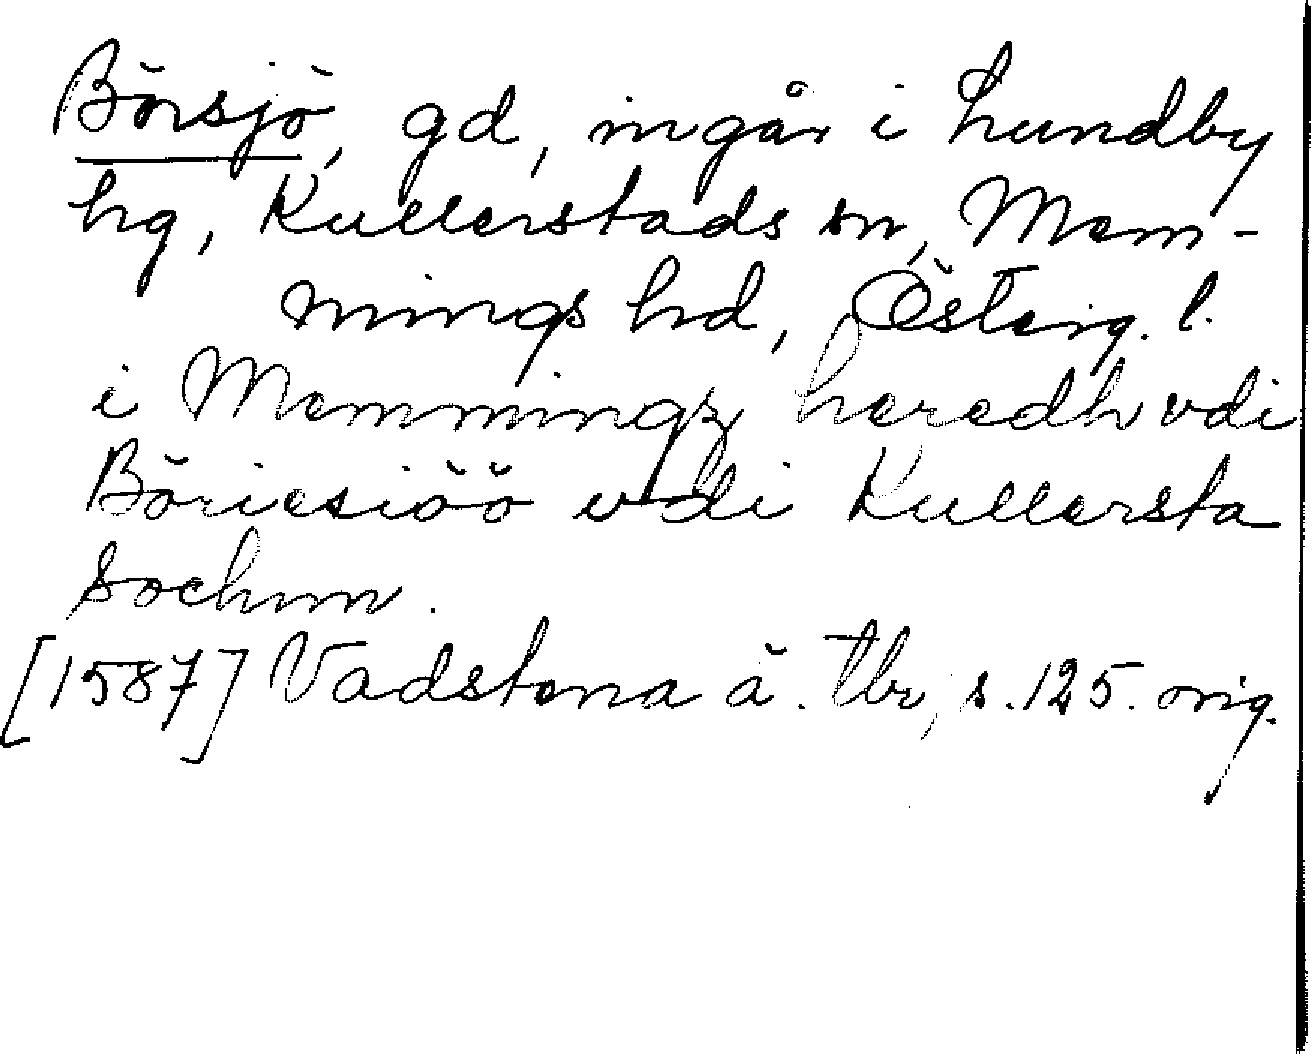 Börsjö, gd, ingår i Lundby
hg, Kullerstads sn, Mem-
mings hd, Österg. l.
i Memmingz heredh vdi
Böriesiöö vdi Kullersta
sochnn.
[1587] Vadstena ä. tbr, s. 125. orig.